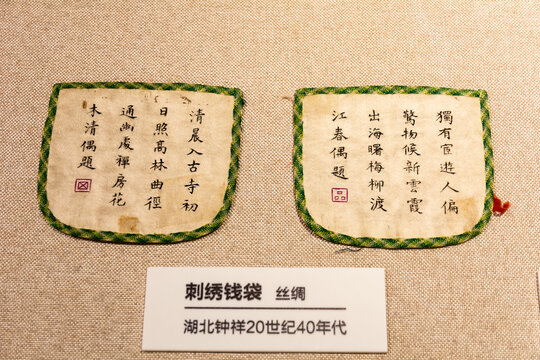 清晨入古寺初
日照高林曲徑
通幽處禪房花
木清偶題
獨有宦遊人偏
驚物候新雲霞
出海曙梅柳渡
江春偶題
刺绣钱袋 丝绸
湖北钟祥20世纪40年代